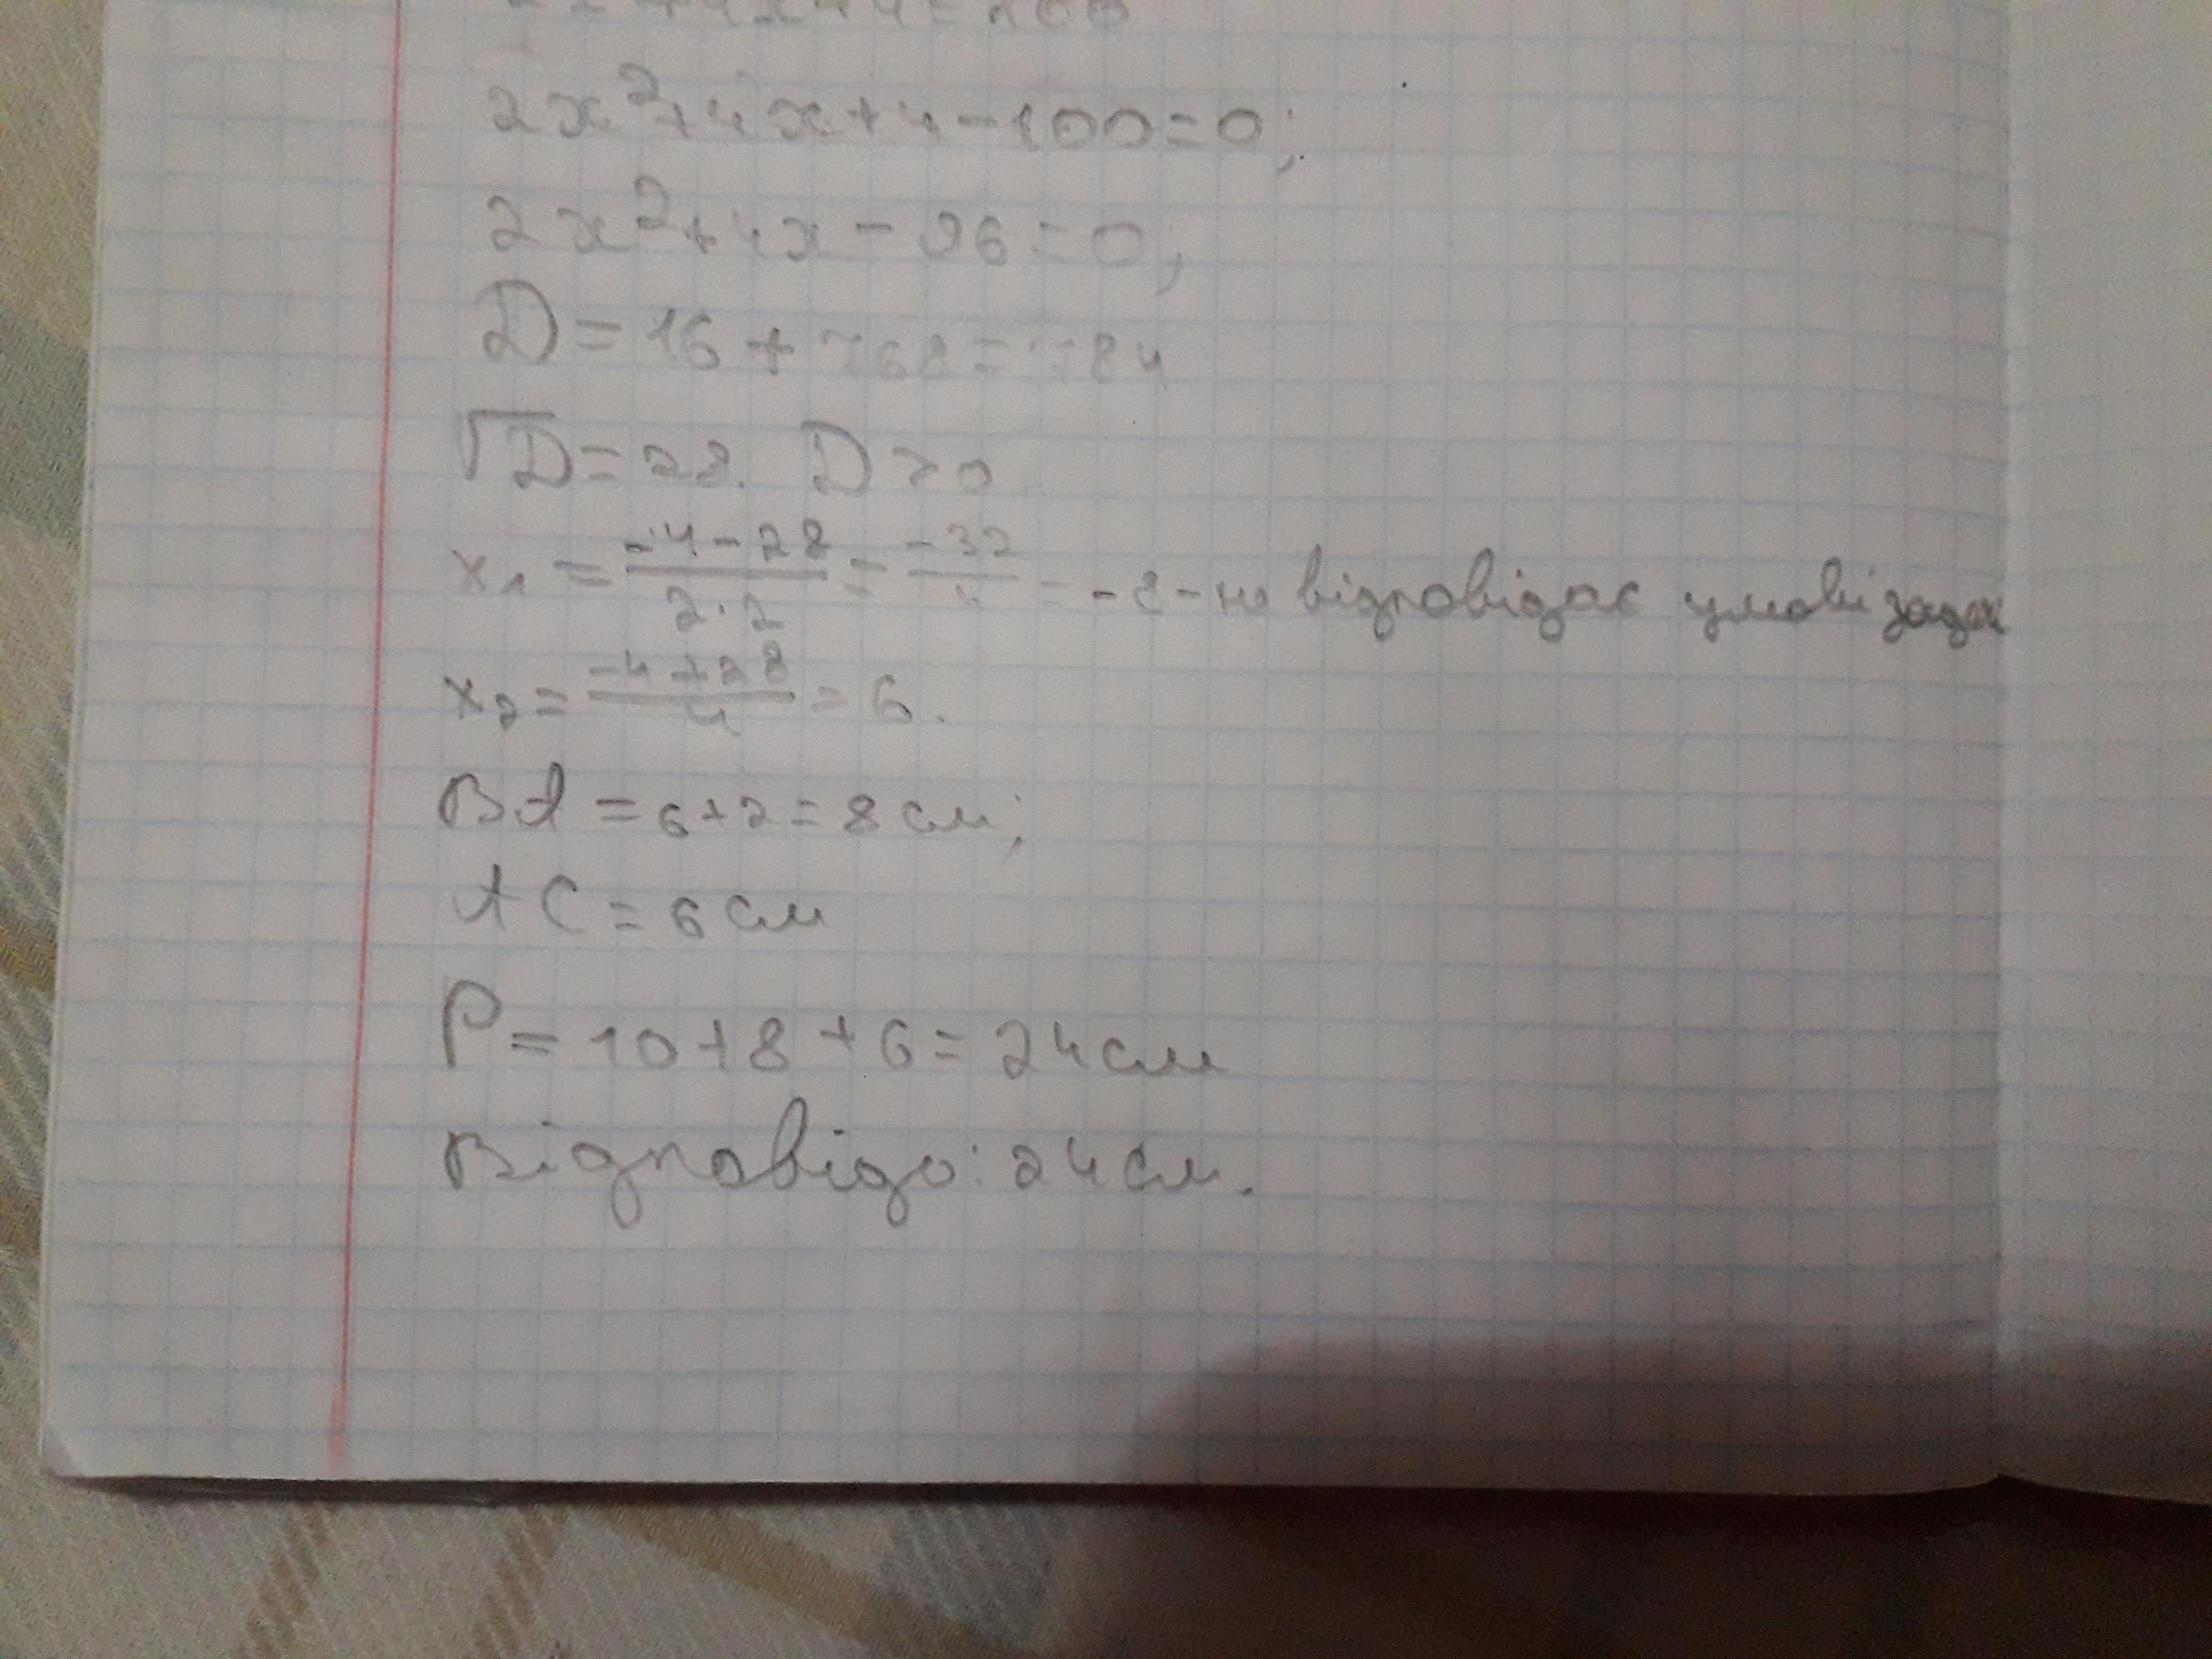 2x²+4x+4=100
2x²+4x+4-100=0;
2x²+4x-96=0;
D=16+768=784
√D=28. D>0
x₁ = (-4-28)/(2·2) = (-32)/4 = -8 - не відповідає умові задачі
x₂ = (-4+28)/4 = 6.
BA = 6+2=8см;
AC = 6см
P = 10+8+6=24см
Відповідь: 24см.